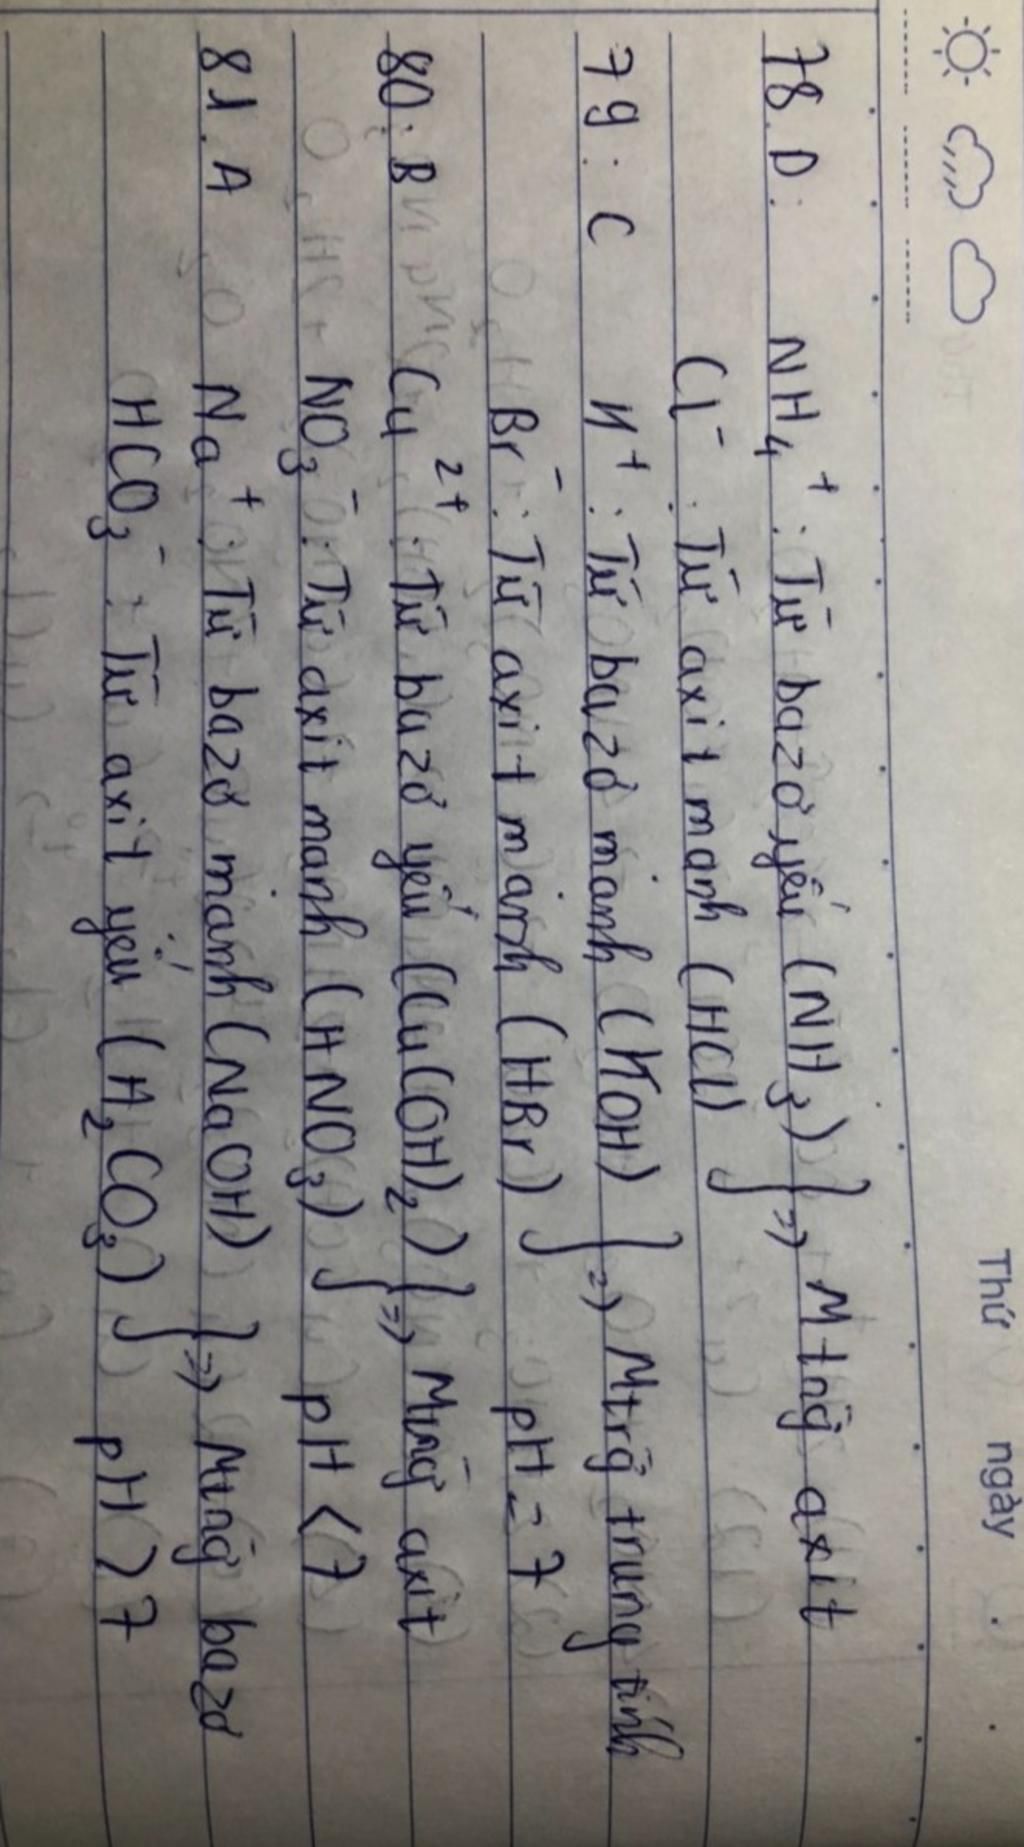 Thứ ngày
78. D: NH₄⁺ : Từ bazơ yếu (NH₃) } => Mtrg axit
Cl⁻ : Từ axit mạnh (HCl)
79 : C K⁺ : Từ bazơ mạnh (KOH) } => Mtrg trung tính
Br⁻ : Từ axit mạnh (HBr) pH = 7
80 : B Cu²⁺ : Từ bazơ yếu (Cu(OH)₂) } => Mtrg axit
NO₃⁻ : Từ axit mạnh (HNO₃) pH < 7
81. A Na⁺ : Từ bazơ mạnh (NaOH) } => Mtrg bazơ
HCO₃⁻ : Từ axit yếu (H₂CO₃) pH > 7